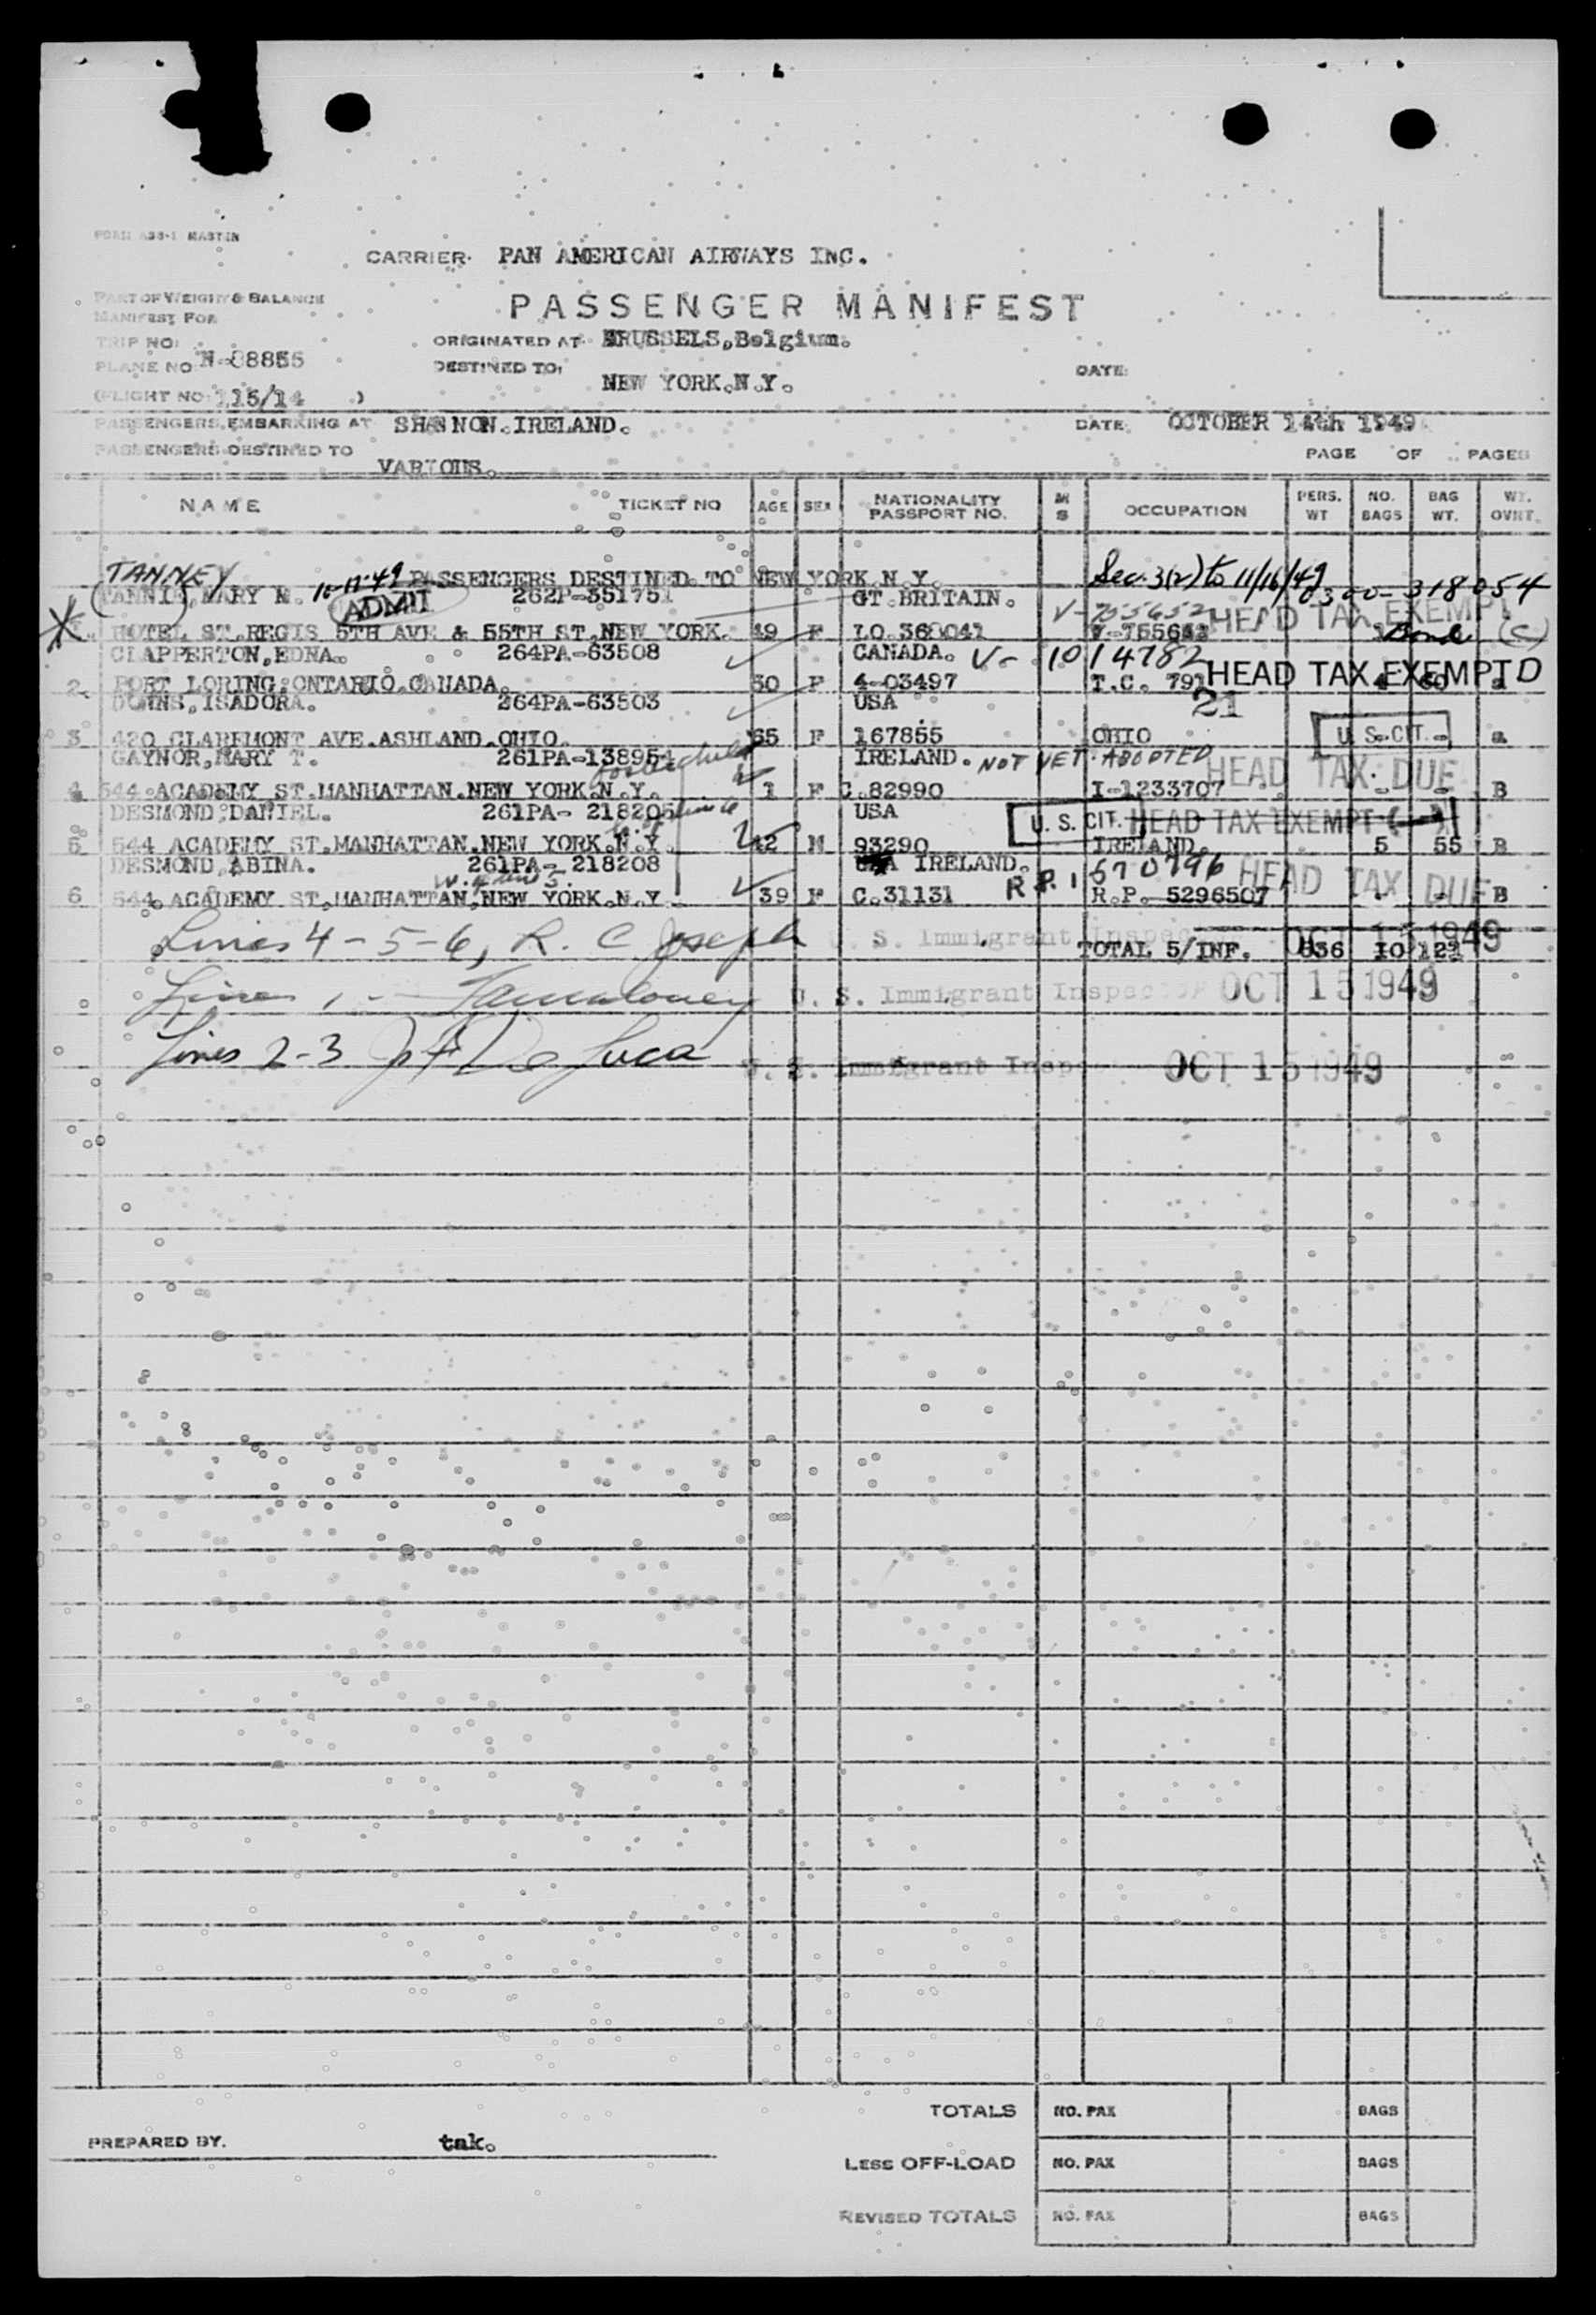 FORM 433-1 MASTER
CARRIER PAN AMERICAN AIRWAYS INC.
PART OF WEIGHT & BALANCE
MANIFEST FOR
PASSENGER MANIFEST
TRIP NO:
ORIGINATED AT BRUSSELS,Belgium.
PLANE NO N-88855
DESTINED TO: NEW YORK.N.Y.
DATE:
(FLIGHT NO: 115/14 )
PASSENGERS EMBARKING AT SHANNON.IRELAND.
DATE: OCTOBER 14th 1949
PASSENGERS DESTINED TO VARIOUS.
PAGE OF PAGES
NAME TICKET NO AGE SEX NATIONALITY PASSPORT NO. M S OCCUPATION PERS. WT NO. BAGS BAG WT. WT. OVNT.
TANNEY 10-17-49 PASSENGERS DESTINED TO NEW YORK.N.Y. Sec. 3(2) to 11/16/49
TANNIE,MARY M. ADMIT 262P-351751 GT.BRITAIN. 0300-318054
V-755652 HEAD TAX EXEMPT
1. HOTEL ST.REGIS 5TH AVE & 55TH ST.NEW YORK. 49 F LO 360041 Bond (C)
CLAPPERTON,EDNA. 264PA-63508 CANADA. V- 1014782
2. PORT LORING,ONTARIO.CANADA. 30 F 4-03497 T.C. 791 HEAD TAX EXEMPT D
DOWNS,ISADORA. 264PA-63503 USA 21
3 420 CLAREMONT AVE.ASHLAND.OHIO. 65 F 167855 OHIO U. S. CIT. - a
GAYNOR,MARY T. 261PA-138954 IRELAND. NOT YET ADOPTED
foster child
4 544 ACADEMY ST.MANHATTAN.NEW YORK.N.Y. 1 F C.82990 I-1233707 HEAD TAX DUE - - B
DESMOND,DANIEL. 261PA- 218205 USA
U. S. CIT. HEAD TAX EXEMPT
5 544 ACADEMY ST.MANHATTAN.NEW YORK.N.Y. 42 M 93290 IRELAND. 5 55 B
DESMOND,ABINA. 261PA- 218208 IRELAND. R.P. 1570796
6 544 ACADEMY ST.MANHATTAN,NEW YORK.N.Y. 39 F C.31131 R.P. 5296507 HEAD TAX DUE - - B
Lines 4-5-6, R. C Joseph U. S. Immigrant Inspector OCT 15 1949
TOTAL 5/INF. 836 10 121
Lines 1 - U. S. Immigrant Inspector OCT 15 1949
Lines 2-3 De Luca U. S. Immigrant Insp OCT 15 1949
TOTALS NO. PAX BAGS
PREPARED BY. tak.
LESS OFF-LOAD NO. PAX BAGS
REVISED TOTALS NO. PAX BAGS